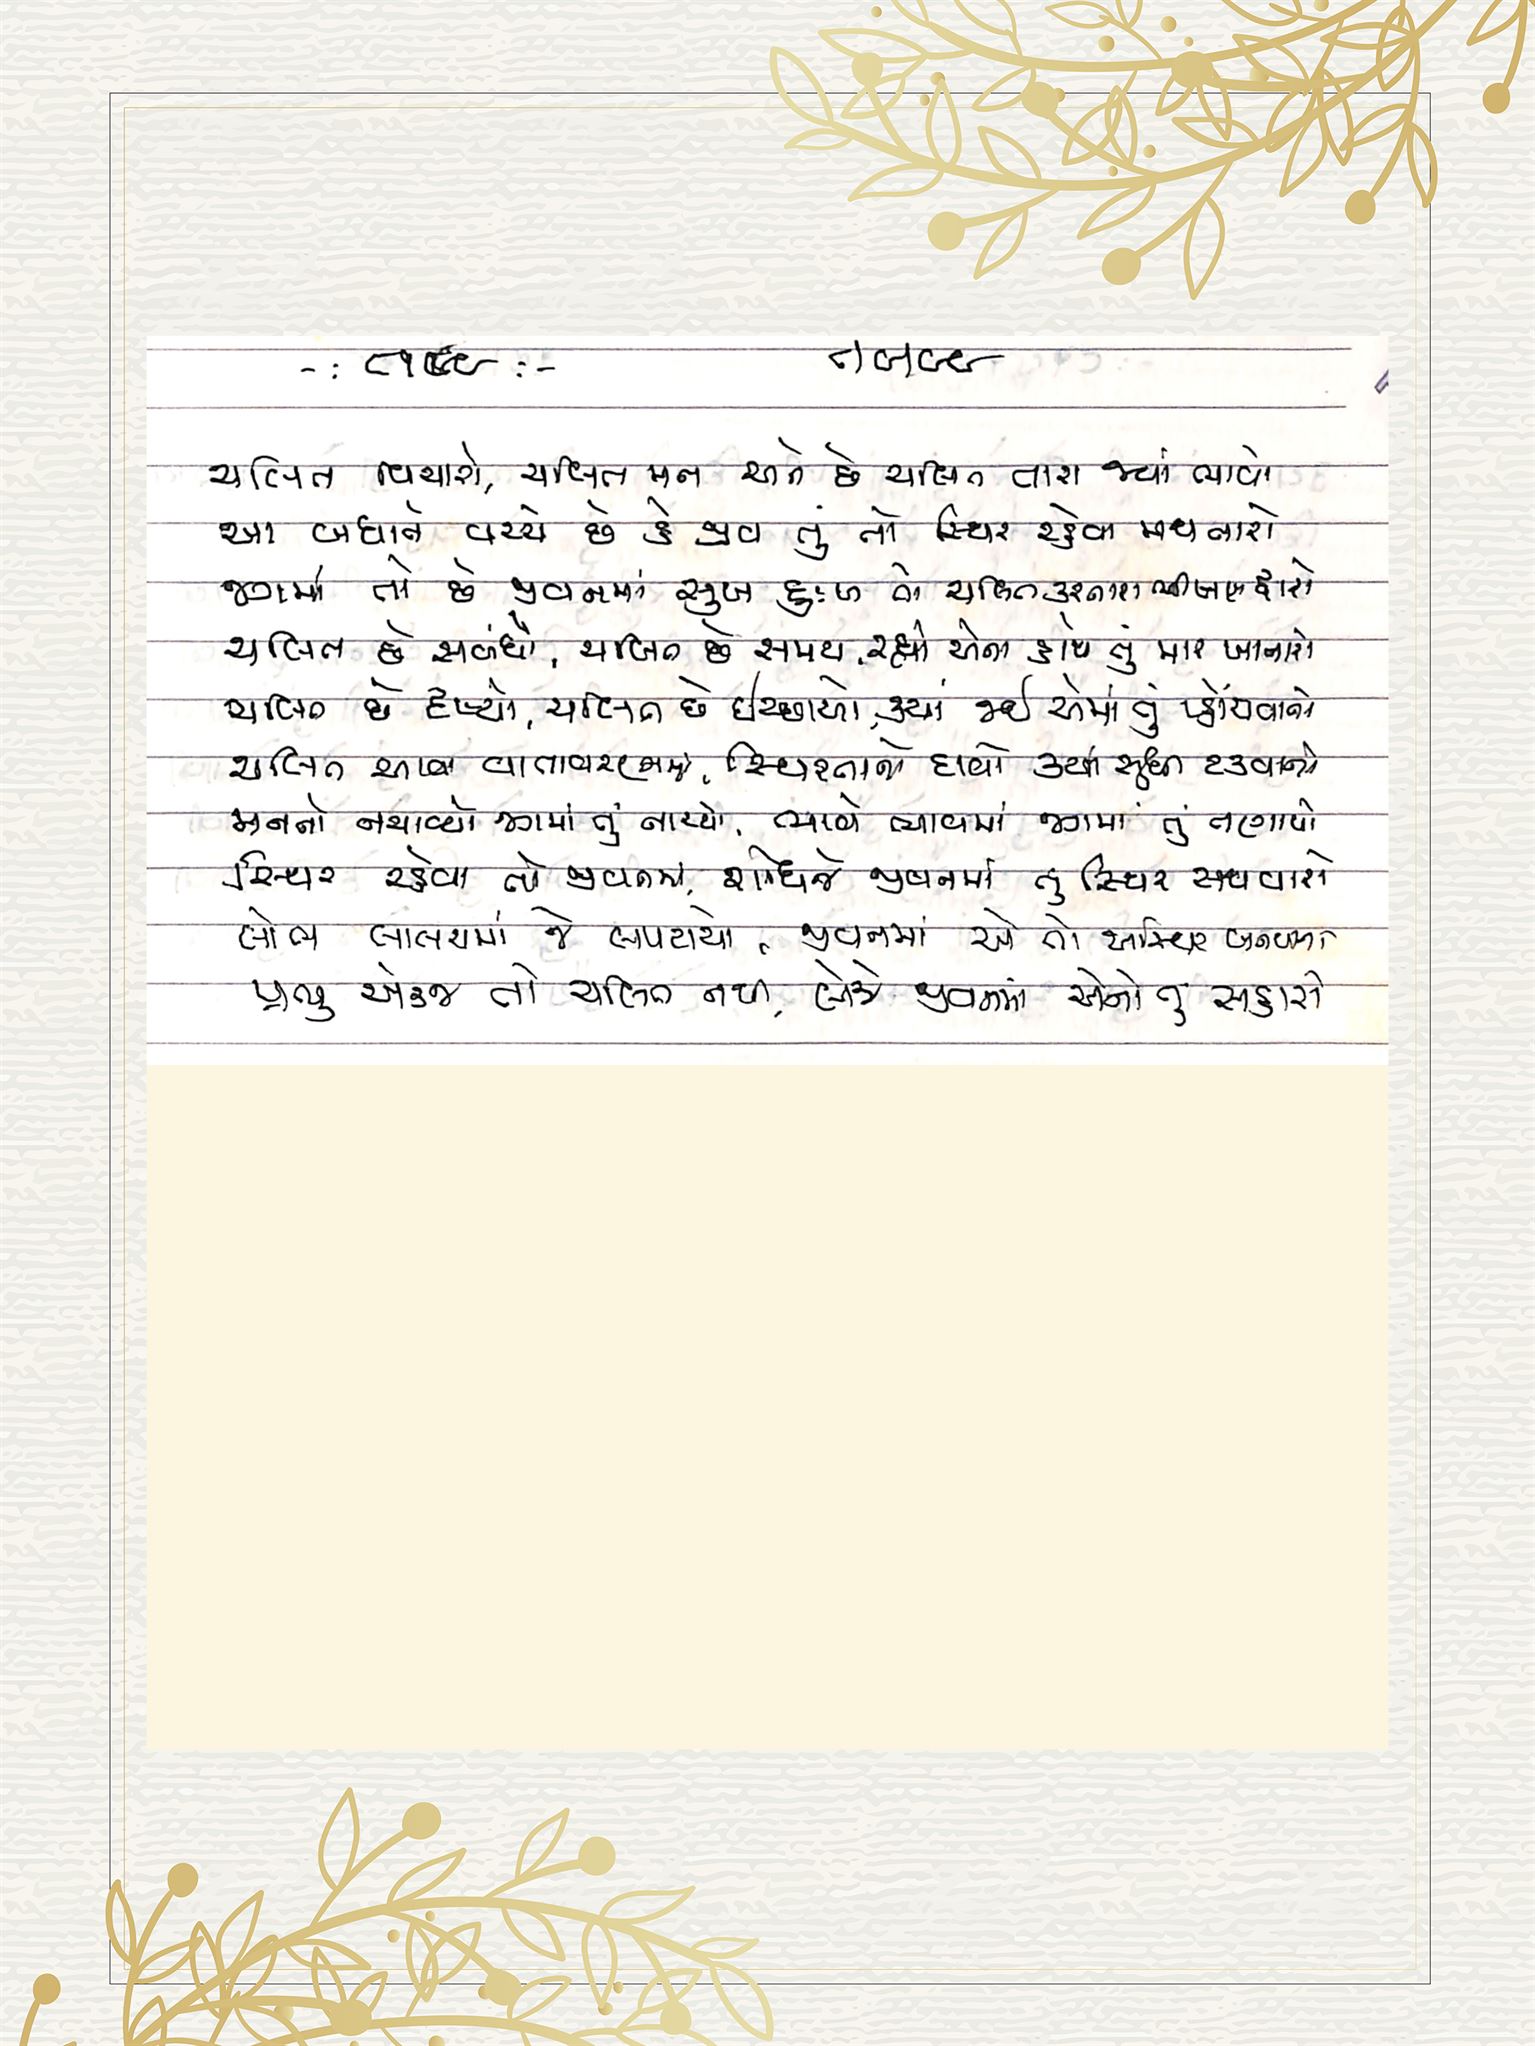 ચલિત વિચારો, ચલિત મન અને છે ચલિત તારા જ્યાં ભાવો
આ બધાને વચ્ચે છે કે જીવ તું તો સ્થિર રહેવા મથનારો
જગમાં તો છે જીવનમાં સુખ દુઃખ તો ચલિત કરનારા
ચલિત છે સબંધો, ચલિત છે સમય, રહ્યો એના હાથે તું માર ખાનારો
ચલિત છે દૃષ્યો, ચલિત છે ઈચ્છાઓ, ક્યાં જઈ એમાં તું પ્હોંચવાનો
ચલિત આવા વાતાવરણમાં, સ્થિરતાનો દાવો ક્યાં સુધી ટકવાનો
મનનો નચાવ્યો જગમાં તું નાચ્યો, ભાવે ભાવમાં જગમાં તું તણાયો
સ્થિર રહેવા તો જીવનમાં, શોધજે જીવનમાં તું સ્થિર સથવારો
લોભ લાલચમાં જે લપટાયો, જીવનમાં એ તો અસ્થિર બનવાના
પ્રભુ એકજ તો ચલિત નથી, લેજે જીવનમાં એનો તું સહારો